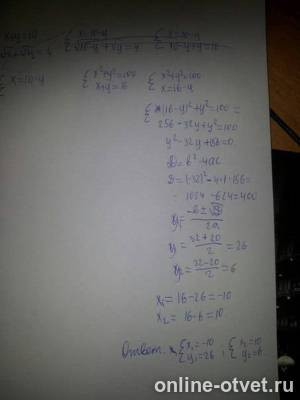 x+y=10 { x=10-y { x=10-y
√x+√y=4 { √10-y+√y=4 { 10-y+y=16
{ x=10-y { x²+y²=100 { x²+y²=100
x+y=16 { x=16-y
{ (16-y)²+y²=100 =
256-32y+y²=100
y²-32y+156=0
D=b²-4ac
D=(-32)²-4·1·156=
- 1024-624=400
y=(-b±√D)/2a
y=(32+20)/2=26
y₂=(32-20)/2=6
x₁=16-26=-10
x₂=16-6=10
Ответ: { x₁=-10 ; { x₂=10
y₁=26 y₂=6.
online-otvet.ru